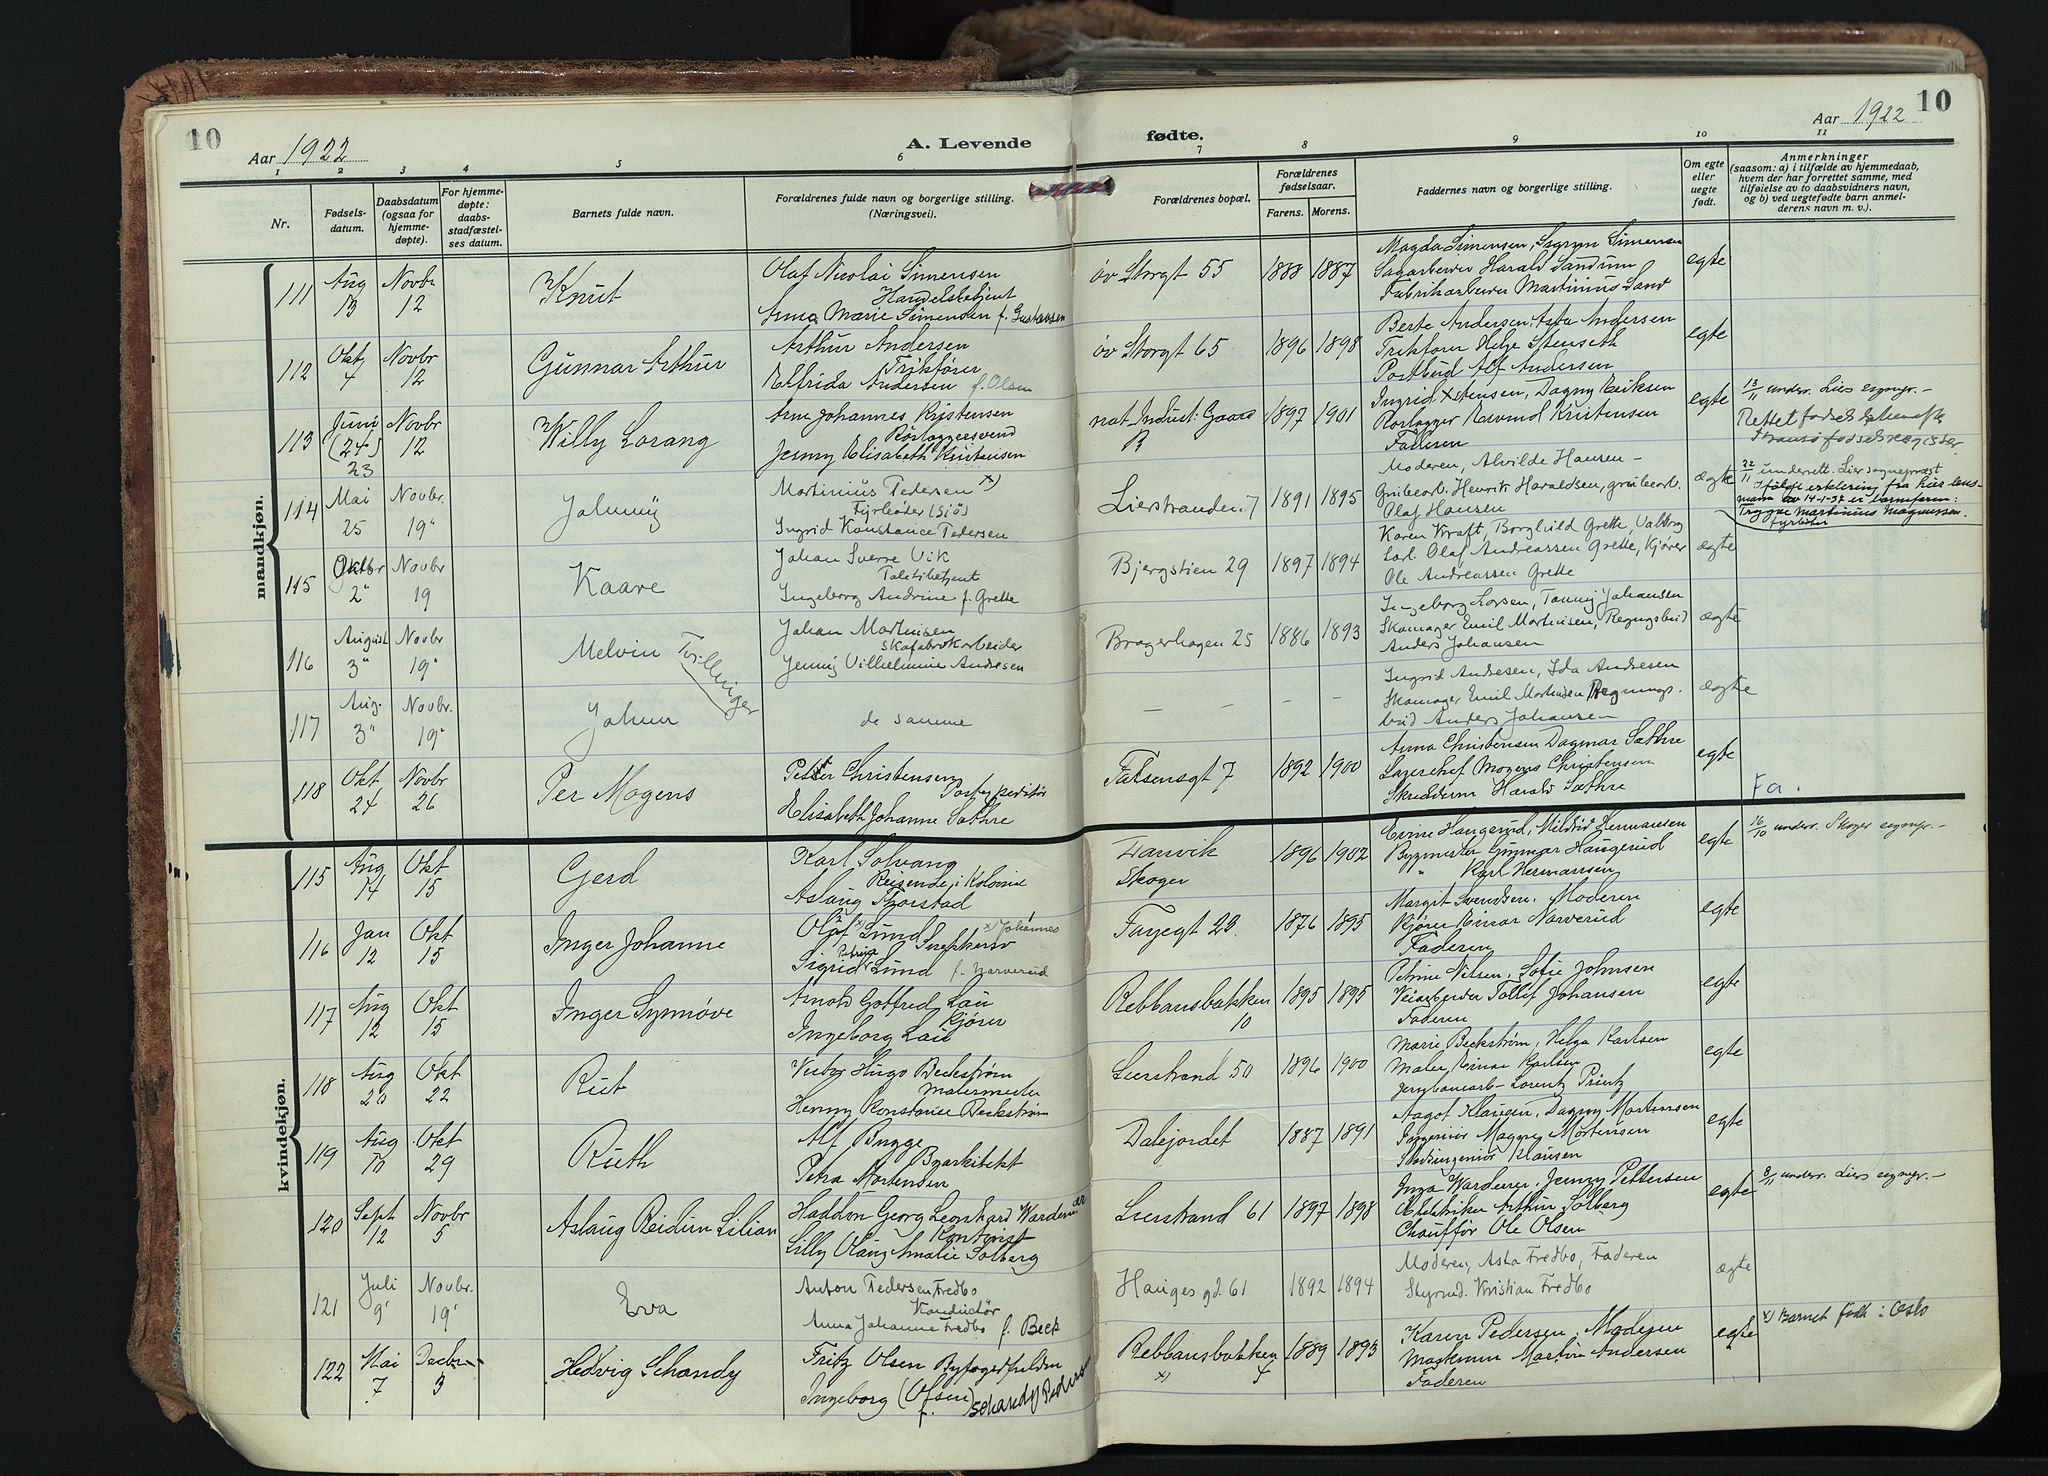 10
Aar 1922
A. Levende
fødte.
Aar 1922
10
1 2 3 4 5 6 7 8 9 10 11
Nr.
Fødsels-
datum.
Daabsdatum
(ogsaa for
hjemme-
døpte).
For hjemme-
døpte:
daabs-
stadfæstel-
ses datum.
Barnets fulde navn.
Forældrenes fulde navn og borgerlige stilling.
(Næringsvei).
Forældrenes bopæl.
Forældrenes
fødselsaar.
Farens. Morens.
Faddernes navn og borgerlige stilling.
Om egte
eller
uegte
født.
Anmerkninger
(saasom: a) i tilfælde av hjemmedaab,
hvem der har forrettet samme, med
tilføielse av to daabsvidners navn,
og b) ved uegtefødte barn anmel-
derens navn m. v.).
mandkjøn.
111 Aug 13 Novbr 12 Knut
Olaf Nicolai Simensen
Handelsbetjent
Anna Marie Simensen f. Gustavsen
øv Storgt 55 1888 1887
Magda Simensen, Simensen
Sagarbeider Harald Sandum
Fabrikarbeider Martinius Sand
egte
112 Okt 4 Novbr 12 Gunnar Arthur
Arthur Andersen
Trikfører
Elfrida Andersen f. Olsen
øv Storgt 65 1896 1898
Berte Andersen, Asta Andersen
Trikfører Helge Stenseth
Postbud Alf Andersen
egte
113 Juni (24) 23 Novbr 12 Willy Lorang
Arne Johannes Kristensen
Rørlæggersvend
Jenny Elisabeth Kristensen
nat. Indust: Gaard B 1897 1901
Ingrid Kristensen, Dagny Eriksen
Rørlægger Kristensen
Faderen
egte
13/11 underr. Liers sognepr. -
Rettet fødselsd.
fødselsregister.
114 Mai 25 Novbr. 19" Johnny
Martinius Pedersen x)
Fyrbøder (Sjø)
Ingrid Konstance Pedersen
Lierstranden 7 1891 1895
Moderen, Alvilde Hansen -
Grubearb. Henrik Haraldsen, grubearb.
Olaf Hansen
ægte
22/11 underrett. Lier sogneprest
Ifølge erklering fra Lier lens-
mann av 14-1-37 er barnefaren:
Trygve Martinius Magnussen.
fyrbøter
115 Oktbr 2" Novbr 19 Kaare
Johan Sverre Vik
Ingeborg Andrine f. Grette
Bjergstien 29 1897 1894
Karen Kraft, Borghild Grette, Valborg
Olaf Andreassen Grette, Kjører
Ole Andreassen Grette
ægte
116 August 3" Novbr 19" Melvin Tvillinger
Johan Martinsen
Skofabrikarbeider
Jenny Vilhelmine Andresen
Bragerhagen 25 1886 1893
Ingeborg Larsen, Fanny Johansen
Skomager Emil Martinsen, Regningsbud
Anders Johansen
ægte
117 Aug. 3" Novbr. 19" Johan
de samme
- - - -
Ingrid Andresen, Ida Andresen
Skomager Emil Martinsen Regnings-
bud Anders Johansen
ægte
118 Okt 24 Novbr 26 Per Mogens
Petter Christensen
Postexpeditør
Elisabeth Johanne Sæthre
Falsensgt 7 1892 1900
Anna Christensen Dagmar Sæthre
Lagerchef Mogens Christensen
Harald Sæthre
egte
Fa.
kvindekjøn.
115 Aug 14 Okt 15 Gerd
Karl Solvang
Reisende i Kolonial
Aslaug
Skoger 1896 1902
Haugerud, Mildrid Hermansen
Bygmester Gunnar Haugerud
" Karl Hermansen
egte
16/10 underr. Skoger sognpr. -
116 Jan 12 Okt 15 Inger Johanne
Olaf x) Lund x) Johannes
Snekkersv
Sigrid Petrea Lund f. Narverud
Fayegt 23. 1876 1895
Margit Svendsen. Moderen
Kjører Einar Narverud
Faderen
egte
117 Aug 12 Okt 15 Inger Synnøve
Arnold Gotfred Lau
Kjører
Ingeborg Lau
Rebbansbakken 10 1895 1895
Petrine Nilsen, Sofie Johnsen
Veiarbeider Tollef Johansen
Faderen
egte
118 Aug 20 Okt 22 Rut
Victor Hugo Beckstrøm
Malermester
Henny Konstanse Beckstrøm
Lierstrand 50 1896 1900
Marie Beckstrøm, Helga Karlsen
Maler Einar Karlsen
Jernbanearb- Lorentz Printz
egte
119 Aug 10 Okt 29 Ruth
Alf Bugge
Byarkitekt
Petra Mortensen
Dalejordet 1887 1891
Aagot Klausen, Dagny Mortensen
Ingeniør Mortensen
Stadsingeniør Klausen
egte
120 Sept 12 Novbr 5 Aslaug Reidun Lilian
Haddon Georg Leonhard Wardenær
Kontorist
Lilly Olaug Amalie Solberg
Lierstrand 61 1897 1898
Inga Wardener. Jenny Pettersen
Elektriker Arthur Solberg
Chauffør Ole Olsen
egte
8/11 underr. Liers sognpr. -
121 Juli 9" Novbr. 19" Eva
Anton Pedersen Fredbo
Konduktør
Anna Johanne Fredbo f. Beck
Hauges gd. 61 1892 1894
Moderen, Asta Fredbo, Faderen
Styrmd. Kristian Fredbo
ægte
122 Mai 7 Decbr 3 Hedvig Schandy
Fritz Olsen Byfogedfuldm
Ingeborg (Olsen) f. Schandy Pedersen
Rebbansbakken x) 4 1889 1893
Karen Pedersen, Moderen
Martin Andersen
Faderen
egte
x) Barnet født i Oslo